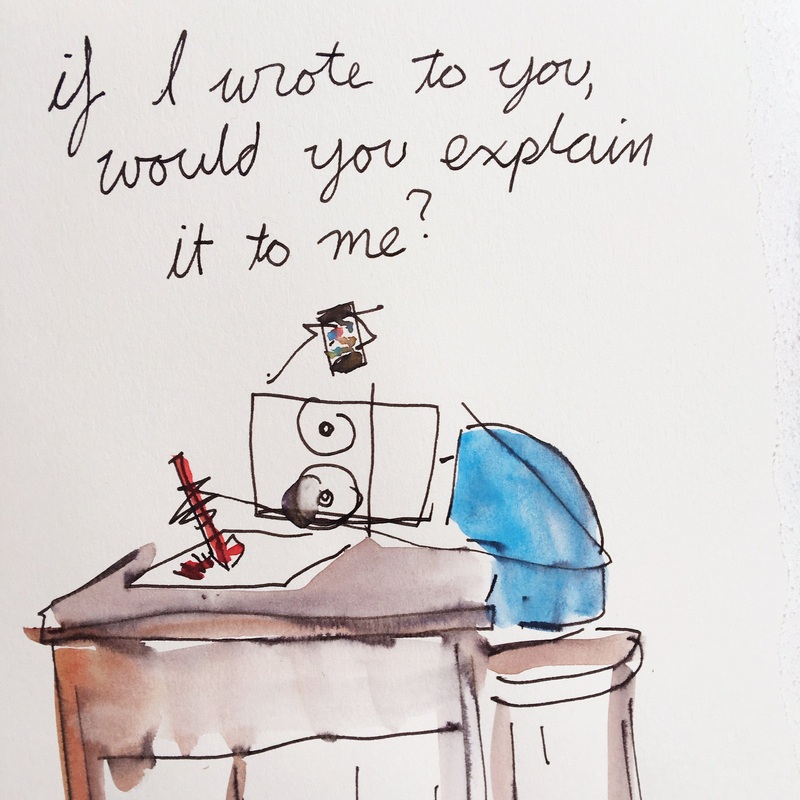 if I wrote to you,
would you explain
it to me?